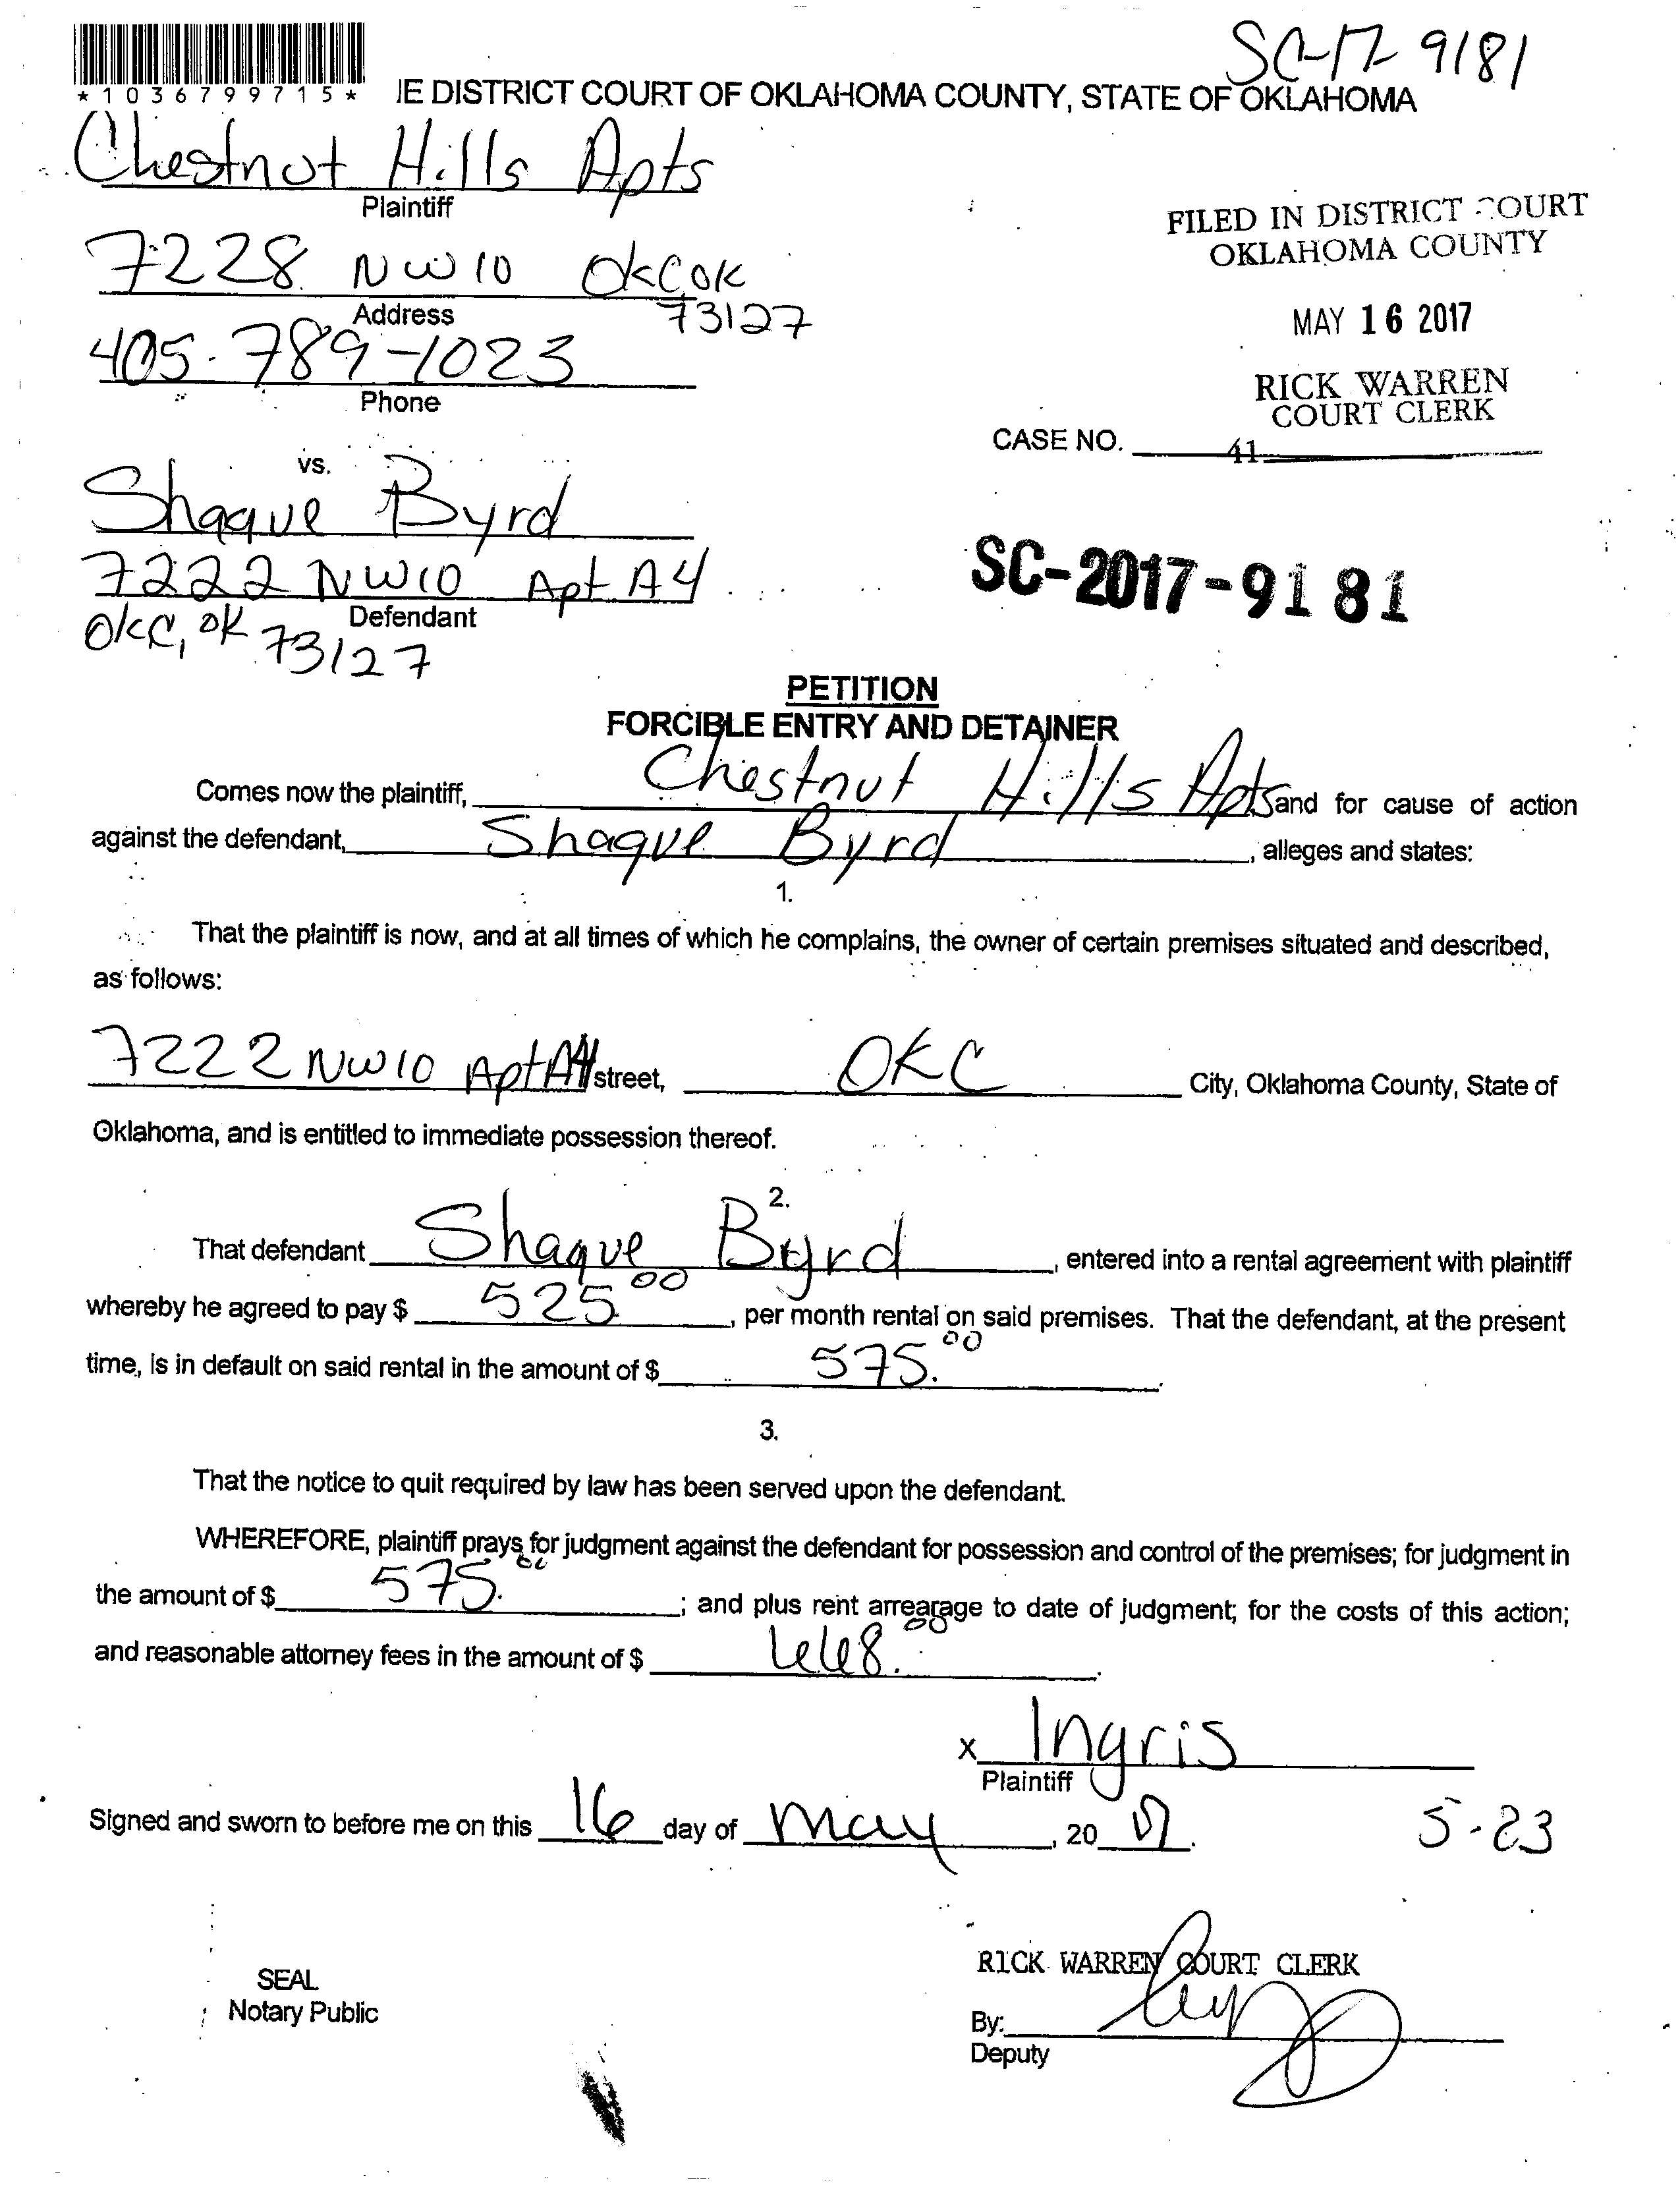 SC-17-9181
*1036799715*
IE DISTRICT COURT OF OKLAHOMA COUNTY, STATE OF OKLAHOMA
Chestnut Hills Apts
Plaintiff
FILED IN DISTRICT COURT
OKLAHOMA COUNTY
7228 NW 10 OKC OK
73127
Address
MAY 16 2017
405-789-1023
Phone
RICK WARREN
COURT CLERK
CASE NO.
41
vs.
Shaque Byrd
7222 NW 10 Apt A4
Defendant
OKC, OK 73127
SC-2017-9181
PETITION
FORCIBLE ENTRY AND DETAINER
Comes now the plaintiff, Chestnut Hills Apts and for cause of action
against the defendant, Shaque Byrd, alleges and states:
1.
That the plaintiff is now, and at all times of which he complains, the owner of certain premises situated and described,
as follows:
7222 NW 10 Apt A4 street, OKC City, Oklahoma County, State of
Oklahoma, and is entitled to immediate possession thereof.
2.
That defendant Shaque Byrd, entered into a rental agreement with plaintiff
whereby he agreed to pay $ 525.00, per month rental on said premises. That the defendant, at the present
time, is in default on said rental in the amount of $ 575.00.
3.
That the notice to quit required by law has been served upon the defendant.
WHEREFORE, plaintiff prays for judgment against the defendant for possession and control of the premises; for judgment in
the amount of $ 575.00; and plus rent arrearage to date of judgment; for the costs of this action;
and reasonable attorney fees in the amount of $ 668.00.
x Ingris
Plaintiff
Signed and sworn to before me on this 16 day of May, 20 17.
5-23
SEAL
Notary Public
RICK WARREN COURT CLERK
By:
Deputy